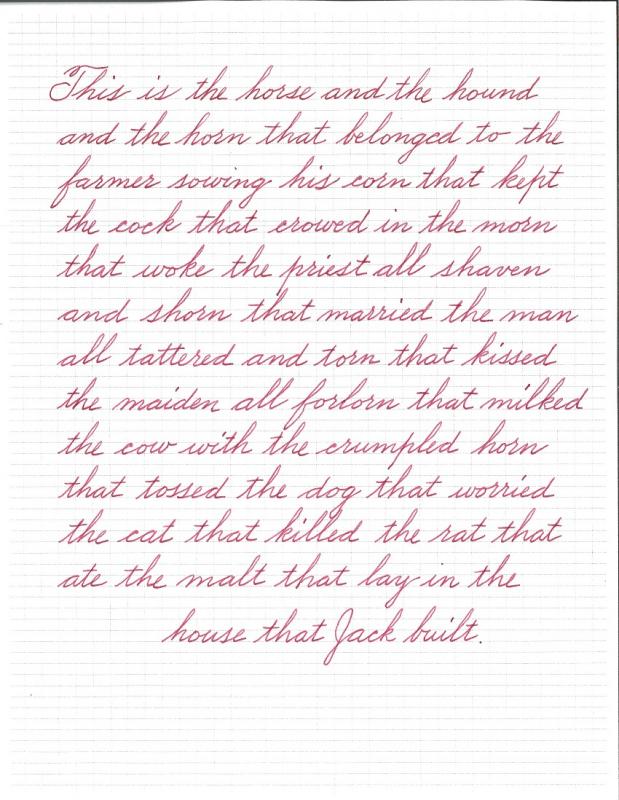 This is the horse and the hound
and the horn that belonged to the
farmer sowing his corn that kept
the cock that crowed in the morn
that woke the priest all shaven
and shorn that married the man
all tattered and torn that kissed
the maiden all forlorn that milked
the cow with the crumpled horn
that tossed the dog that worried
the cat that killed the rat that
ate the malt that lay in the
house that Jack built.